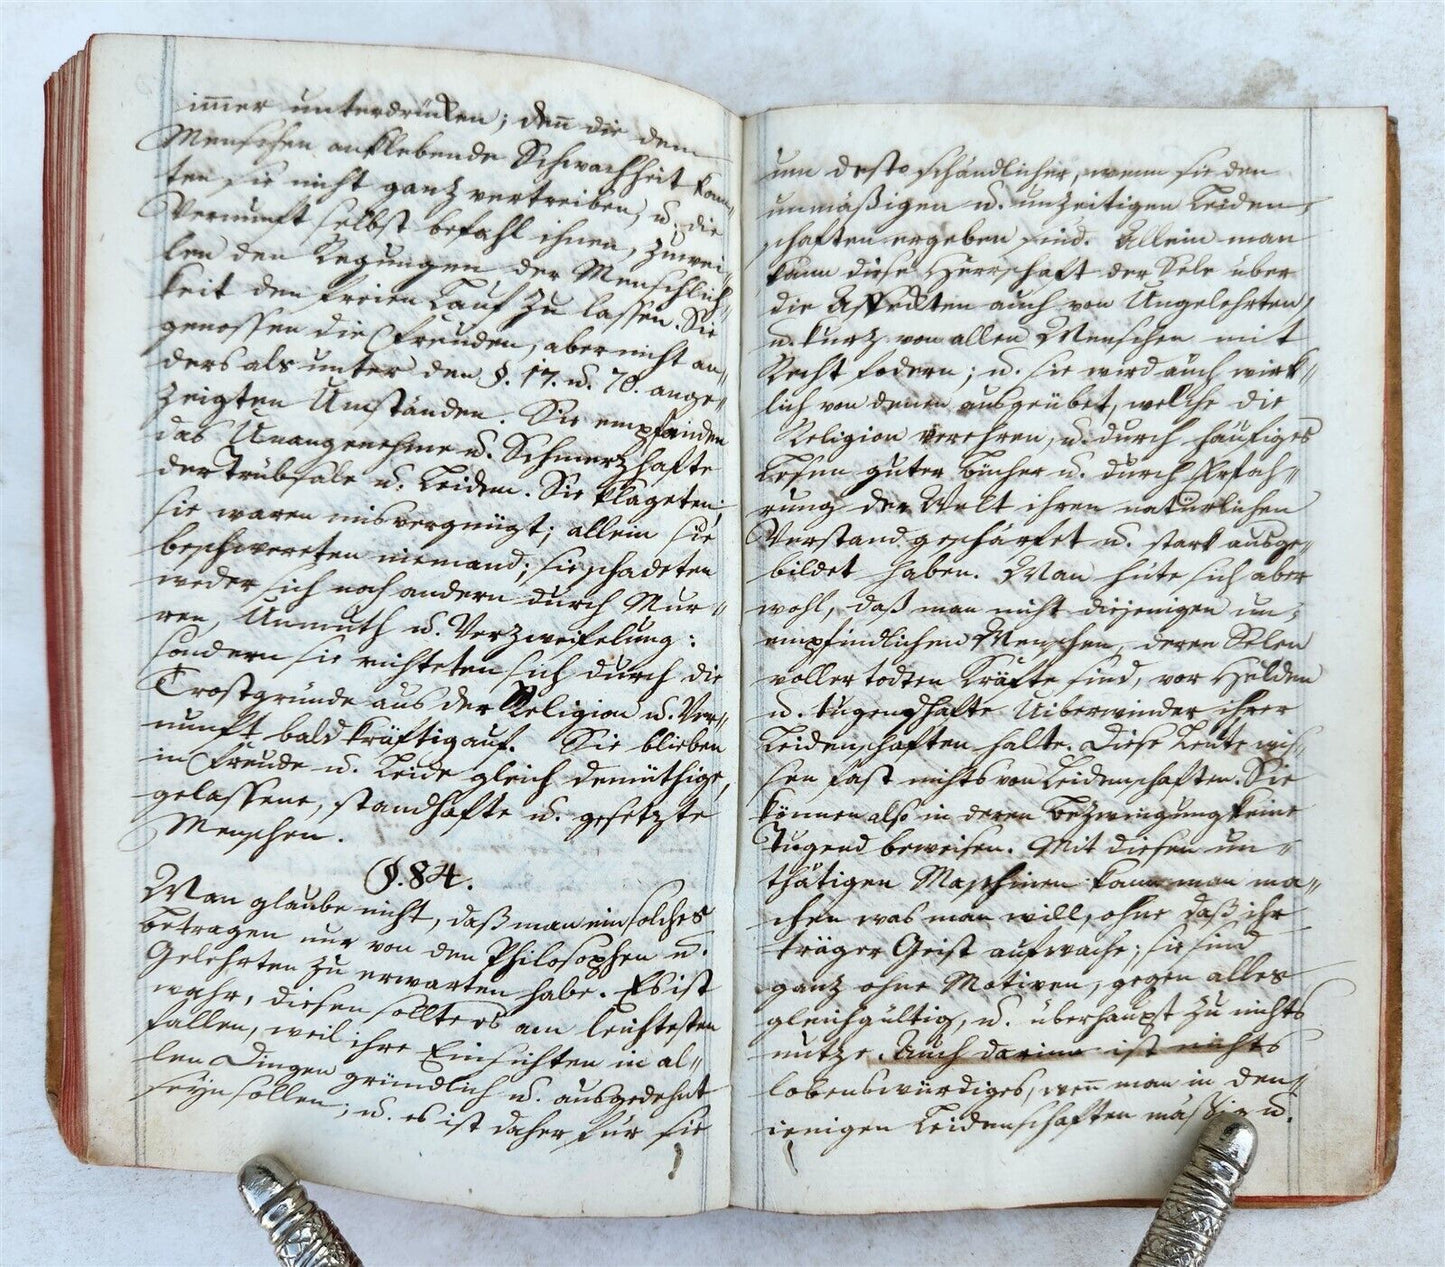 im̅er unterdrücken; den̅ die dem
Menschen anklebende Schwachheit kon̅-
ten sie nicht ganz vertreiben, u. die
Vernunft selbst befahl ihnen, zuwei-
len den Regungen der Menschlich-
keit den freien Lauf zu lassen. Sie
genossen die Freuden, aber nicht an-
ders als unter den §. 17. u. 70. ange-
zeigten Umständen. Sie empfanden
das Unangenehme u. Schmerzhafte
der Trübsale u. Leiden. Sie klageten,
sie waren misvergnügt; allein sie
beschwereten niemand; sie schadeten
weder sich noch andern durch Mur-
ren, Unmuth u. Verzweifelung:
sondern sie richteten sich durch die
Trostgründe aus der Religion u. Ver-
nunft bald kräftig auf. Sie blieben
in Freude u. Leide gleich demüthige,
gelassene, standhafte u. gesetzte
Menschen.
§. 84.
Man glaube nicht, daß man ein solches
Betragen nur von den Philosophen u.
Gelehrten zu erwarten habe. Es ist
wahr, diesen sollte es am leichtesten
fallen, weil ihre Einsichten in al-
len Dingen gründlich u. ausgedehnt
seyn sollen; u. es ist daher für sie
um desto schändlicher, wenn sie den
unmäßigen u. unzeitigen Leiden-
schaften ergeben sind. Allein man
kann diese Herrschaft der Sele über
die Affekten auch von Ungelehrten,
u. kurz von allen Menschen mit
Recht fodern; u. sie wird auch wirk-
lich von denen ausgeübet, welche die
Religion verehren, u. durch häufiges
Lesen guter Bücher u. durch Erfah-
rung der Welt ihren natürlichen
Verstand geschärfet u. stark ausge-
bildet haben. Man hüte sich aber
wohl, daß man nicht diejenigen un-
empfindlichen Menschen, deren Selen
voller todten Kräfte sind, vor Helden
u. tugendhafte Uiberwinder ihrer
Leidenschaften halte. Diese Leute wis-
sen fast nichts von Leidenschaften. Sie
können also in deren Bezwingung keine
Tugend beweisen. Mit diesen un-
thätigen Maschinen kann man ma-
chen was man will, ohne daß ihr
träger Geist aufwache; sie sind
ganz ohne Motiven, gegen alles
gleichgültig, u. überhaupt zu nichts
nutze. Auch darinn ist nichts
lobenswürdiges, wen̅ man in den-
ienigen Leidenschaften mäßig u.